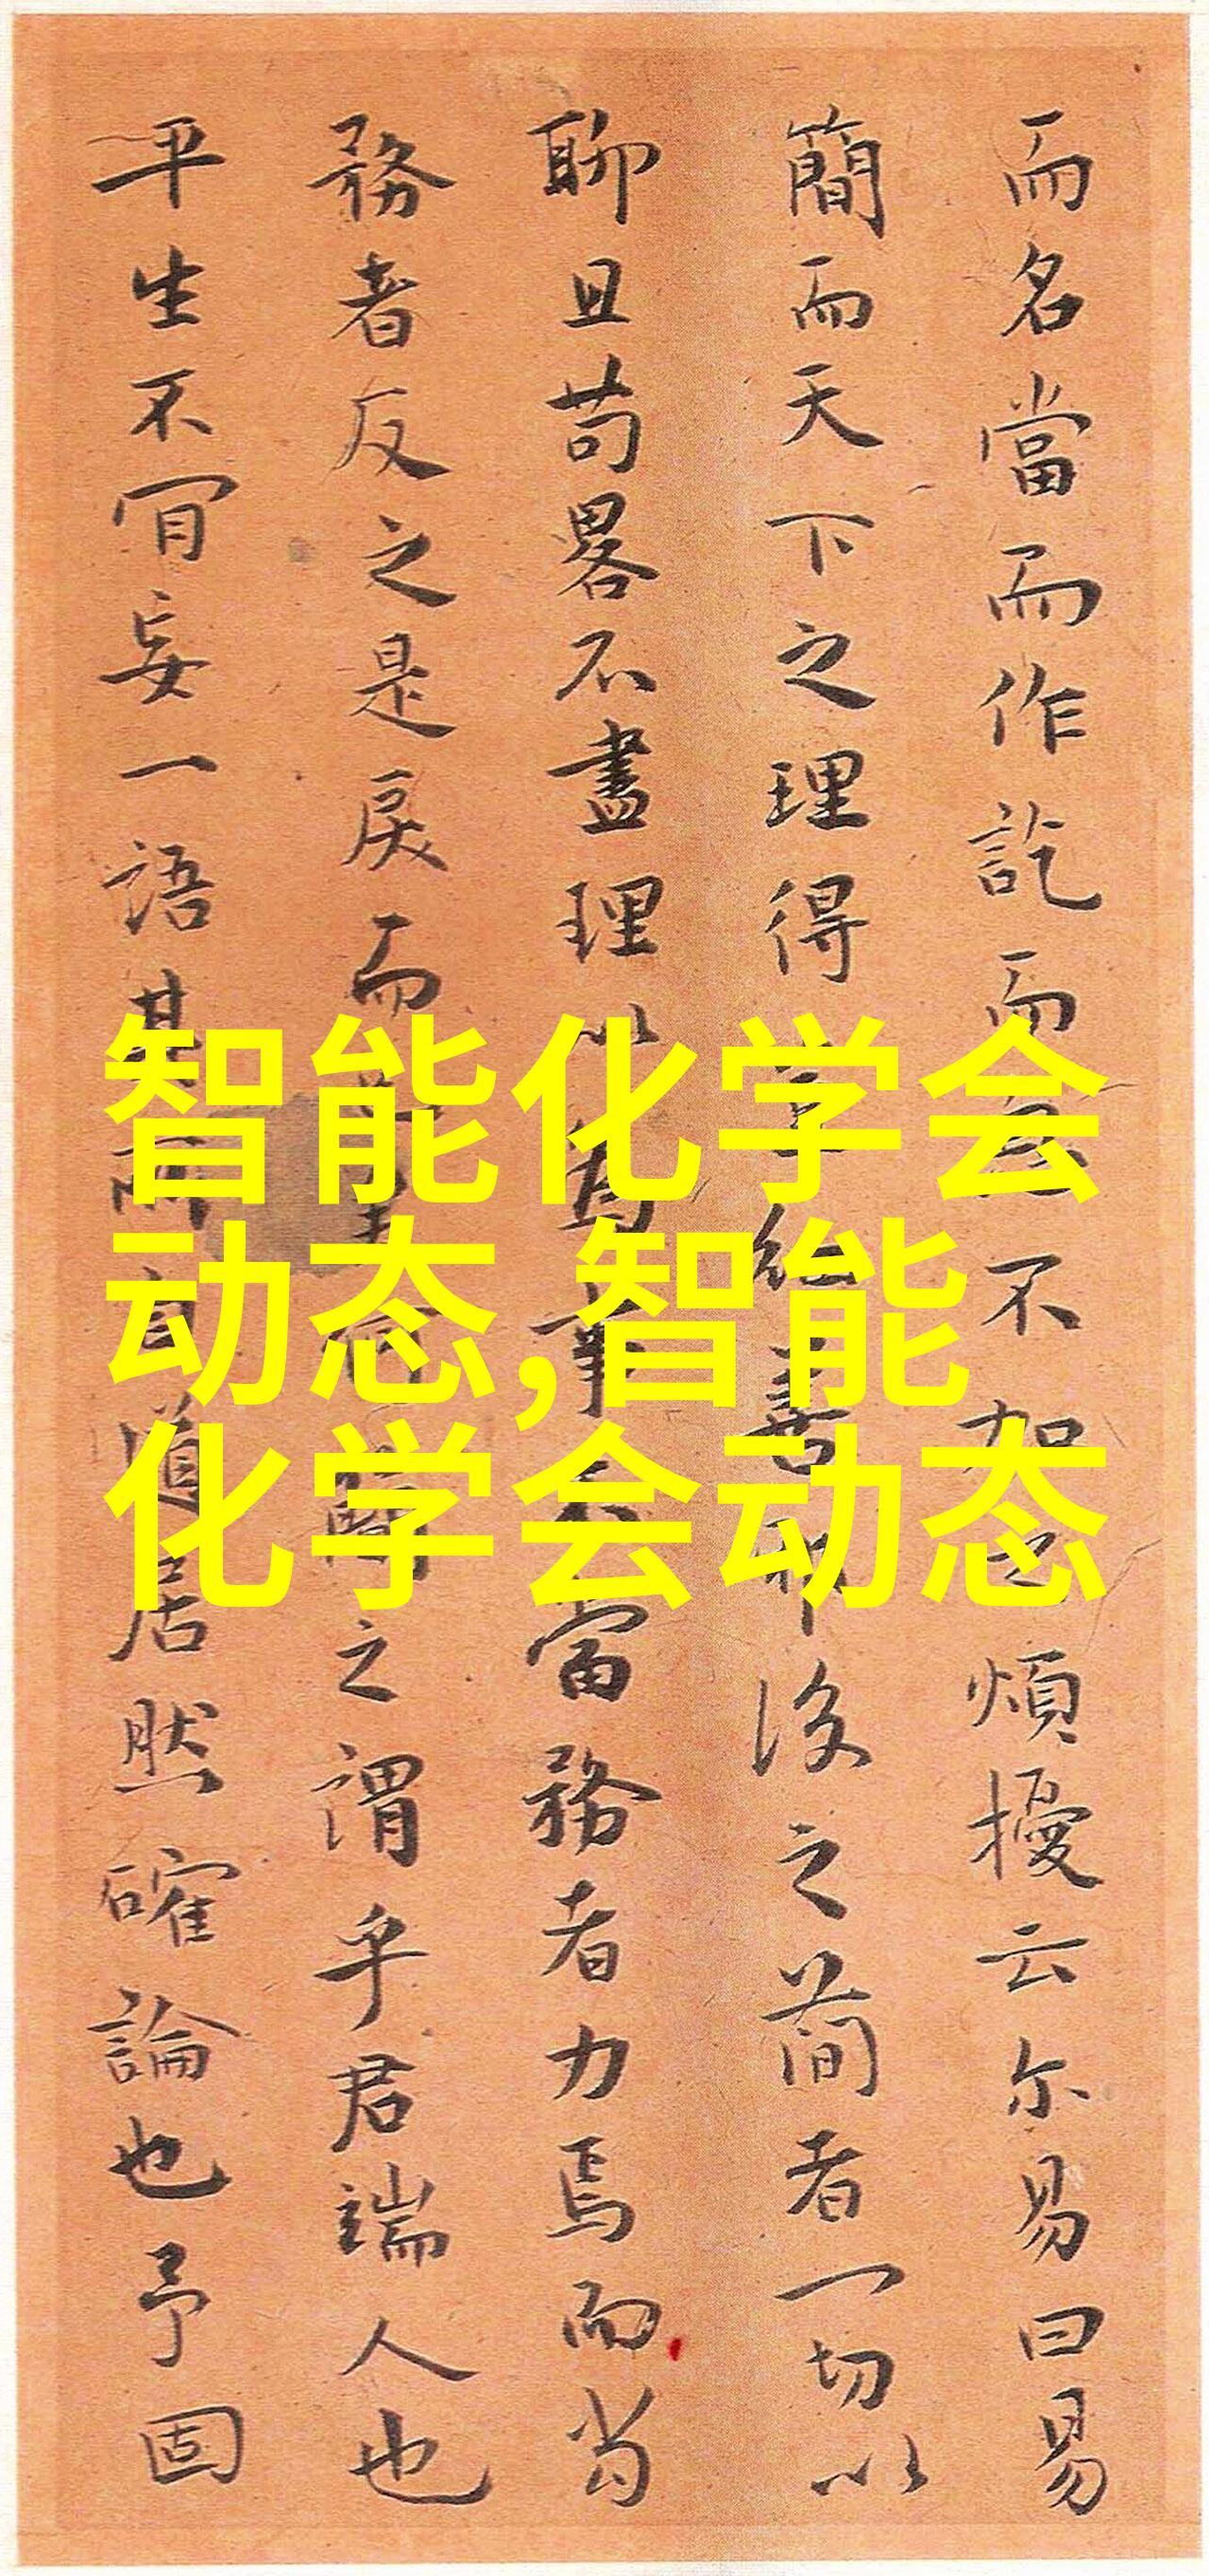 而名當而作訖而不加煩擾云尔易曰易
簡而天下之理得後之简者一切以
聊且苟畧不盡理以為事不當務者力焉而
務者反之是戾而之謂乎君端人也
平生不肎妄一語其所自道居然確論也予固
智能化学会
动态,智能
化学会动态